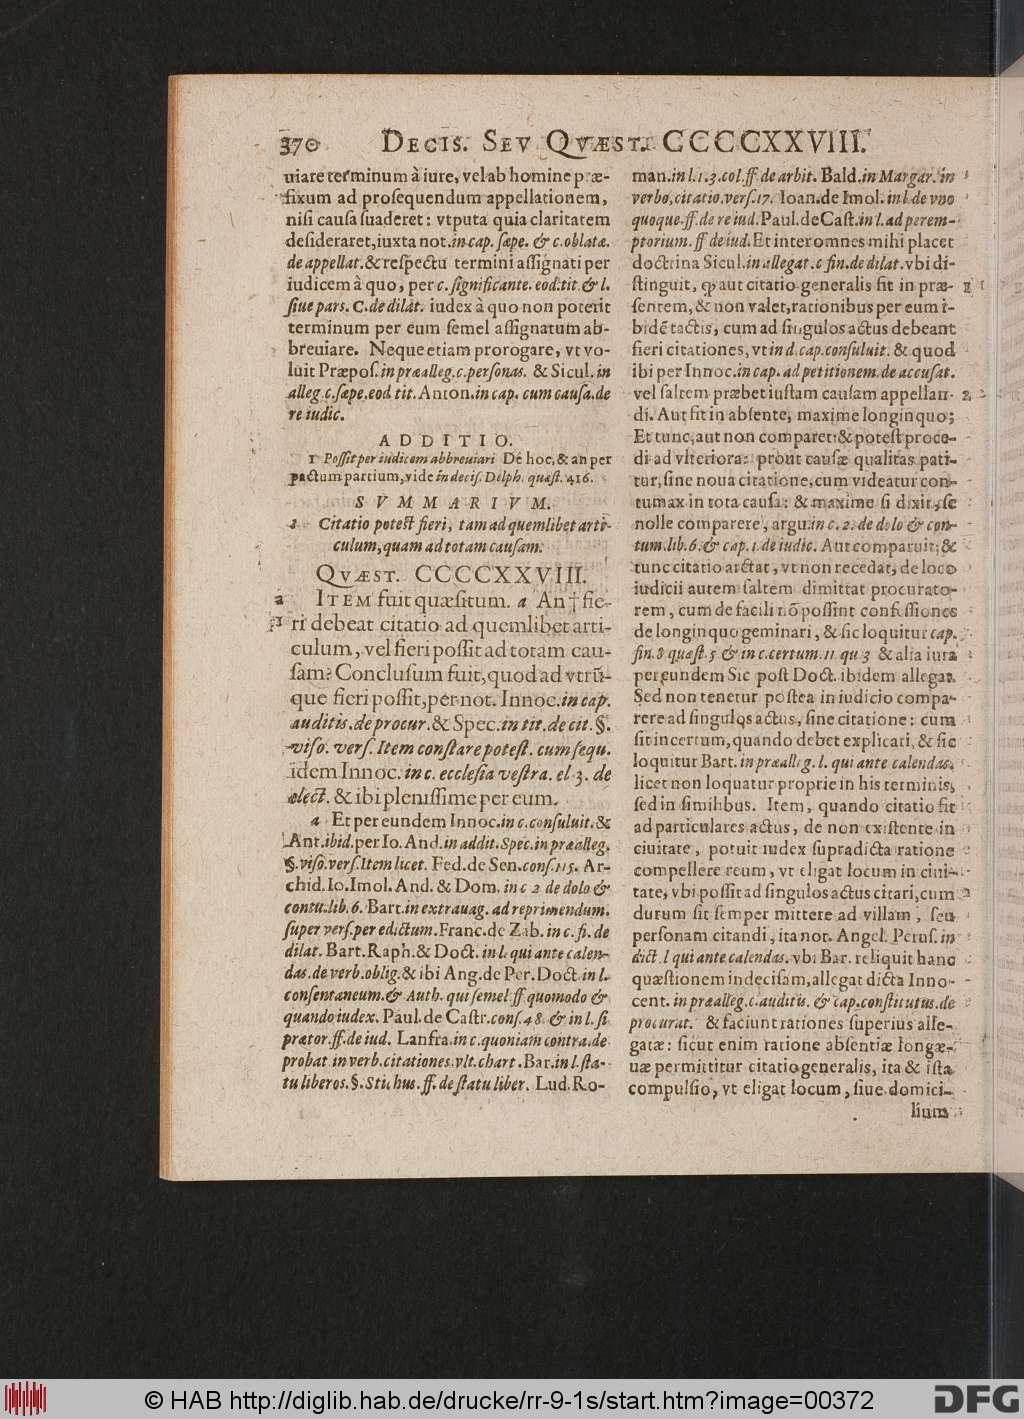 370 DECIS. SEV QVÆST. CCCCXXVIII.
uiare terminum à iure, vel ab homine præ-
fixum ad prosequendum appellationem,
nisi causa suaderet: vtputa quia claritatem
desideraret, iuxta not. in cap. sæpe. & c. oblatæ.
de appellat. & respectu termini assignati per
iudicem à quo, per c. significante. eod. tit. & l.
siue pars. C. de dilat. iudex à quo non poterit
terminum per eum semel assignatum ab-
breuiare. Neque etiam prorogare, vt vo-
luit Præpos. in præalleg. c. personas. & Sicul. in
alleg. c. sæpe. eod tit. Anton. in cap. cum causa. de
re iudic.
ADDITIO.
1 Possit per iudicem abbreuiari De hoc, & an per
pactum partium, vide in decis. Delph. quæst. 416.
SVMMARIVM.
1 Citatio potest fieri, tam ad quemlibet arti-
culum, quam ad totam causam.
QVÆST. CCCCXXVIII.
a ITEM fuit quæsitum. a An † fie-
1 ri debeat citatio ad quemlibet arti-
culum, vel fieri possit ad totam cau-
sam? Conclusum fuit, quod ad vtrũ-
que fieri possit, per not. Innoc. in cap.
auditis. de procur. & Spec. in tit. de cit. §.
viso. vers. Item constare potest. cum sequ.
idem Innoc. in c. ecclesia vestra. el 3. de
elect. & ibi plenissime per eum.
a Et per eundem Innoc. in c. consuluit. &
Ant. ibid. per Io. And. in addit. Spec. in præalleg.
§. viso. vers. Item licet. Fed. de Sen. cons. 115. Ar-
chid. Io. Imol. And. & Dom. in c 2 de dolo &
contu. lib. 6. Bart. in extrauag. ad reprimendum.
super vers. per edictum. Franc. de Zab. in c. fi. de
dilat. Bart. Raph. & Doct. in l. qui ante calen-
das. de verb. oblig. & ibi Ang. de Per. Doct. in l.
consentaneum. & Auth. qui semel ff quomodo &
quando iudex. Paul. de Castr. cons. 48. & in l. si
prætor. ff. de iud. Lanfra. in c. quoniam contra. de
probat. in verb. citationes. vlt. chart. Bar. in l. sta-
tu liberos. §. Stichus. ff. de statu liber. Lud. Ro-
man. in l. 1. 3. col. ff. de arbit. Bald. in Margar. in
verbo, citatio. vers. 17. Ioan. de Imol. in l. de vno
quoque. ff. de re iud. Paul. de Cast. in l. ad perem-
ptorium. ff de iud. Et inter omnes mihi placet
doctrina Sicul. in allegat. c fin. de dilat. vbi di-
stinguit, ꝙ aut citatio generalis fit in præ-
sentem, & non valet, rationibus per eum i-
bidẽ tactis, cum ad singulos actus debeant
fieri citationes, vt in d. cap. consuluit. & quod
ibi per Innoc. in cap. ad petitionem. de accusat.
vel saltem præbet iustam causam appellan-
di. Aut fit in absente, maxime longinquo;
Et tunc, aut non comparet: & potest proce-
di ad vlteriora: prout causæ qualitas pati-
tur, sine noua citatione, cum videatur con-
tumax in tota causa: & maxime si dixit, se
nolle comparere, argu. in c. 2. de dolo & con-
tum. lib. 6. & cap. 1. de iudic. Aut comparuit; &
tunc citatio arctat, vt non recedat, de loco
iudicii autem saltem dimittat procurato-
rem, cum de facili nõ possint confessiones
de longinquo geminari, & sic loquitur cap.
fin. 8 quæst. 5 & in c. certum. 11. qu. 3 & alia iura
per eundem Sic post Doct. ibidem allegat.
Sed non tenetur postea in iudicio compa-
rere ad singulos actus, sine citatione: cum
sit incertum, quando debet explicari, & sic
loquitur Bart. in præalleg. l. qui ante calendas.
licet non loquatur proprie in his terminis,
sed in similibus. Item, quando citatio fit
ad particulares actus, de non existente in
ciuitate, potuit iudex supradicta ratione
compellere reum, vt eligat locum in ciui-
tate, vbi possit ad singulos actus citari, cum
durum sit semper mittere ad villam, seu
personam citandi, ita not. Angel. Perus. in
dict. l qui ante calendas. vbi Bar. reliquit hanc
quæstionem indecisam, allegat dicta Inno-
cent. in præalleg. c. auditis. & cap. constitutus. de
procurat. & faciunt rationes superius alle-
gatæ: sicut enim ratione absentiæ longæ-
uæ permittitur citatio generalis, ita & ista
compulsio, vt eligat locum, siue domici-
lium
© HAB http://diglib.hab.de/drucke/rr-9-1s/start.htm?image=00372
DFG